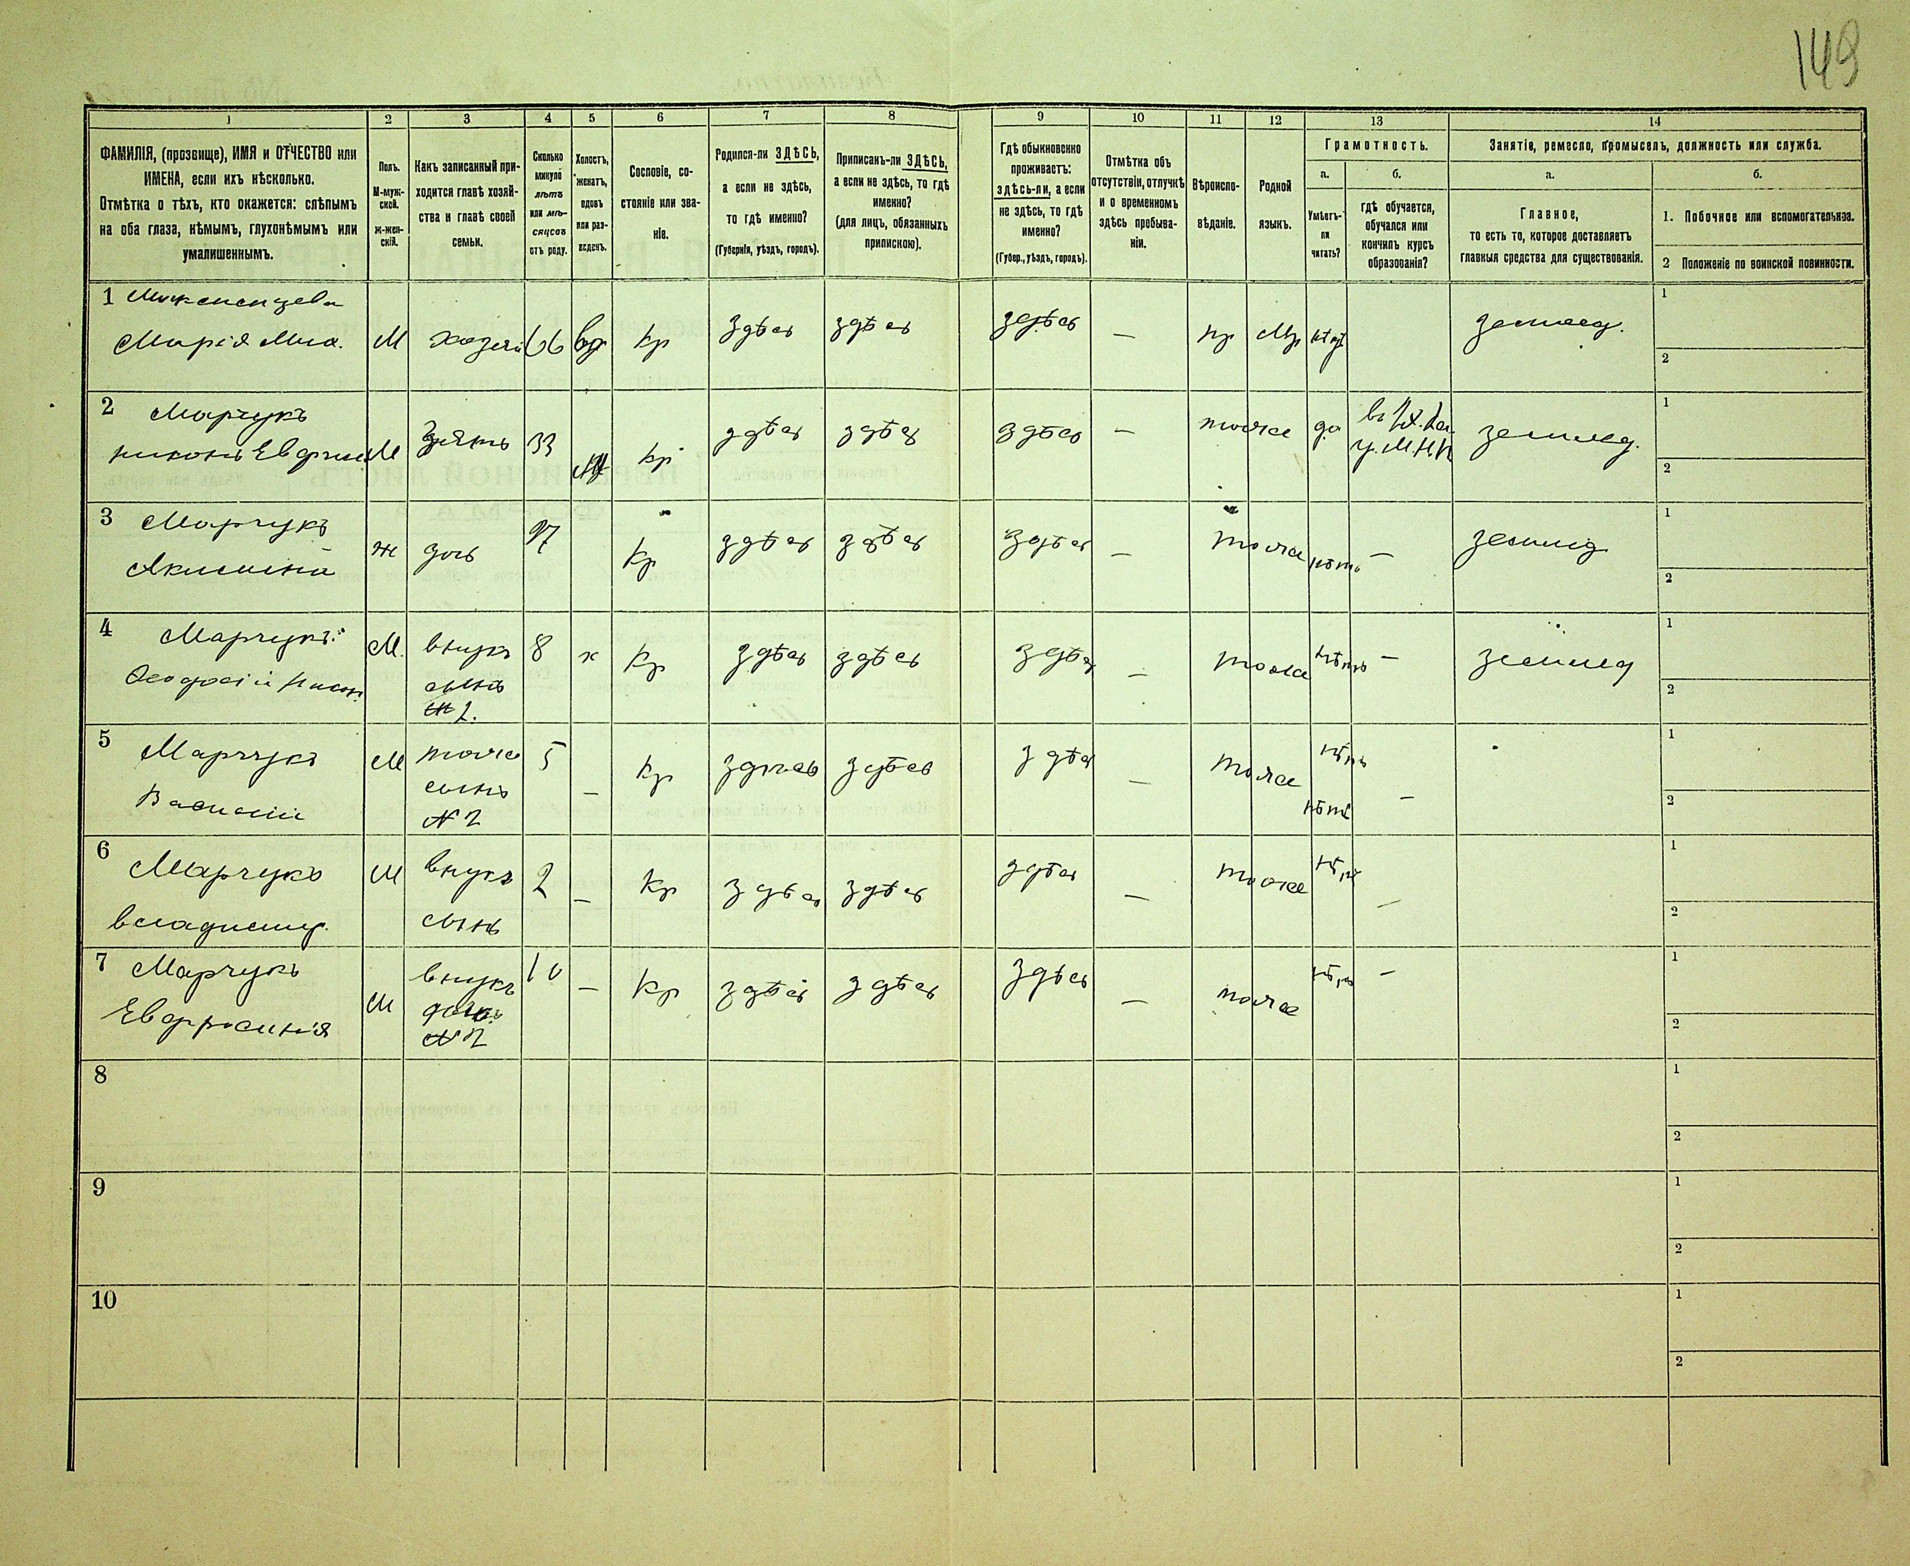 149
1 2 3 4 5 6 7 8 9 10 11 12 13 14
ФАМИЛІЯ, (прозвище), ИМЯ и ОТЧЕСТВО или
ИМЕНА, если ихъ нѣсколько.
Отмѣтка о тѣхъ, кто окажется: слѣпымъ
на оба глаза, нѣмымъ, глухонѣмымъ или
умалишеннымъ.
Полъ.
М-муж-
ской.
ж-жен-
скій.
Какъ записанный при-
ходится главѣ хозяй-
ства и главѣ своей
семьи.
Сколько
минуло
лѣтъ
или мѣ-
сяцевъ
отъ роду.
Холостъ,
женатъ,
вдовъ
или раз-
веденъ.
Сословіе, со-
стояніе или зва-
ніе.
Родился-ли ЗДѢСЬ,
а если не здѣсь,
то гдѣ именно?
(Губернія, уѣздъ, городъ).
Приписанъ-ли ЗДѢСЬ,
а если не здѣсь, то гдѣ
именно?
(для лицъ, обязанныхъ
припискою).
Гдѣ обыкновенно
проживаетъ:
здѣсь-ли, а если
не здѣсь, то гдѣ
именно?
(Губер., уѣздъ, городъ).
Отмѣтка объ
отсутствіи, отлучкѣ
и о временномъ
здѣсь пребыва-
ніи.
Вѣроиспо-
вѣданіе.
Родной
языкъ.
Грамотность.
а.
Умѣетъ-
ли
читать?
б.
гдѣ обучается,
обучался или
кончилъ курсъ
образованія?
Занятіе, ремесло, промыселъ, должность или служба.
а.
Главное,
то есть то, которое доставляетъ
главныя средства для существованія.
б.
1. Побочное или вспомогательное.
2 Положеніе по воинской повинности.
1
Марія М 66 вд Кр здѣсь здѣсь здѣсь — пр землед. 1
2
2 Марчукъ
М Зять 33 Кр здѣсь здѣсь здѣсь — тоже да землед. 1
2
3 Марчукъ
ж дочь Кр здѣсь здѣсь здѣсь — тоже нѣтъ — землед 1
2
4 Марчукъ
М. внукъ 8 х Кр здѣсь здѣсь здѣсь — тоже нѣтъ — землед 1
сынъ
2. 2
5 Марчукъ
Василій
М тоже 5 — Кр здѣсь здѣсь здѣсь — тоже нѣтъ 1
сынъ нѣтъ — 2
№ 2
6 Марчукъ
М внукъ 2 — Кр здѣсь здѣсь здѣсь — тоже нѣтъ — 1
сынъ 2
7 Марчукъ
Евфросинія
М внукъ 10 — Кр здѣсь здѣсь здѣсь — тоже нѣтъ — 1
№ 2 2
8 1
2
9 1
2
10 1
2